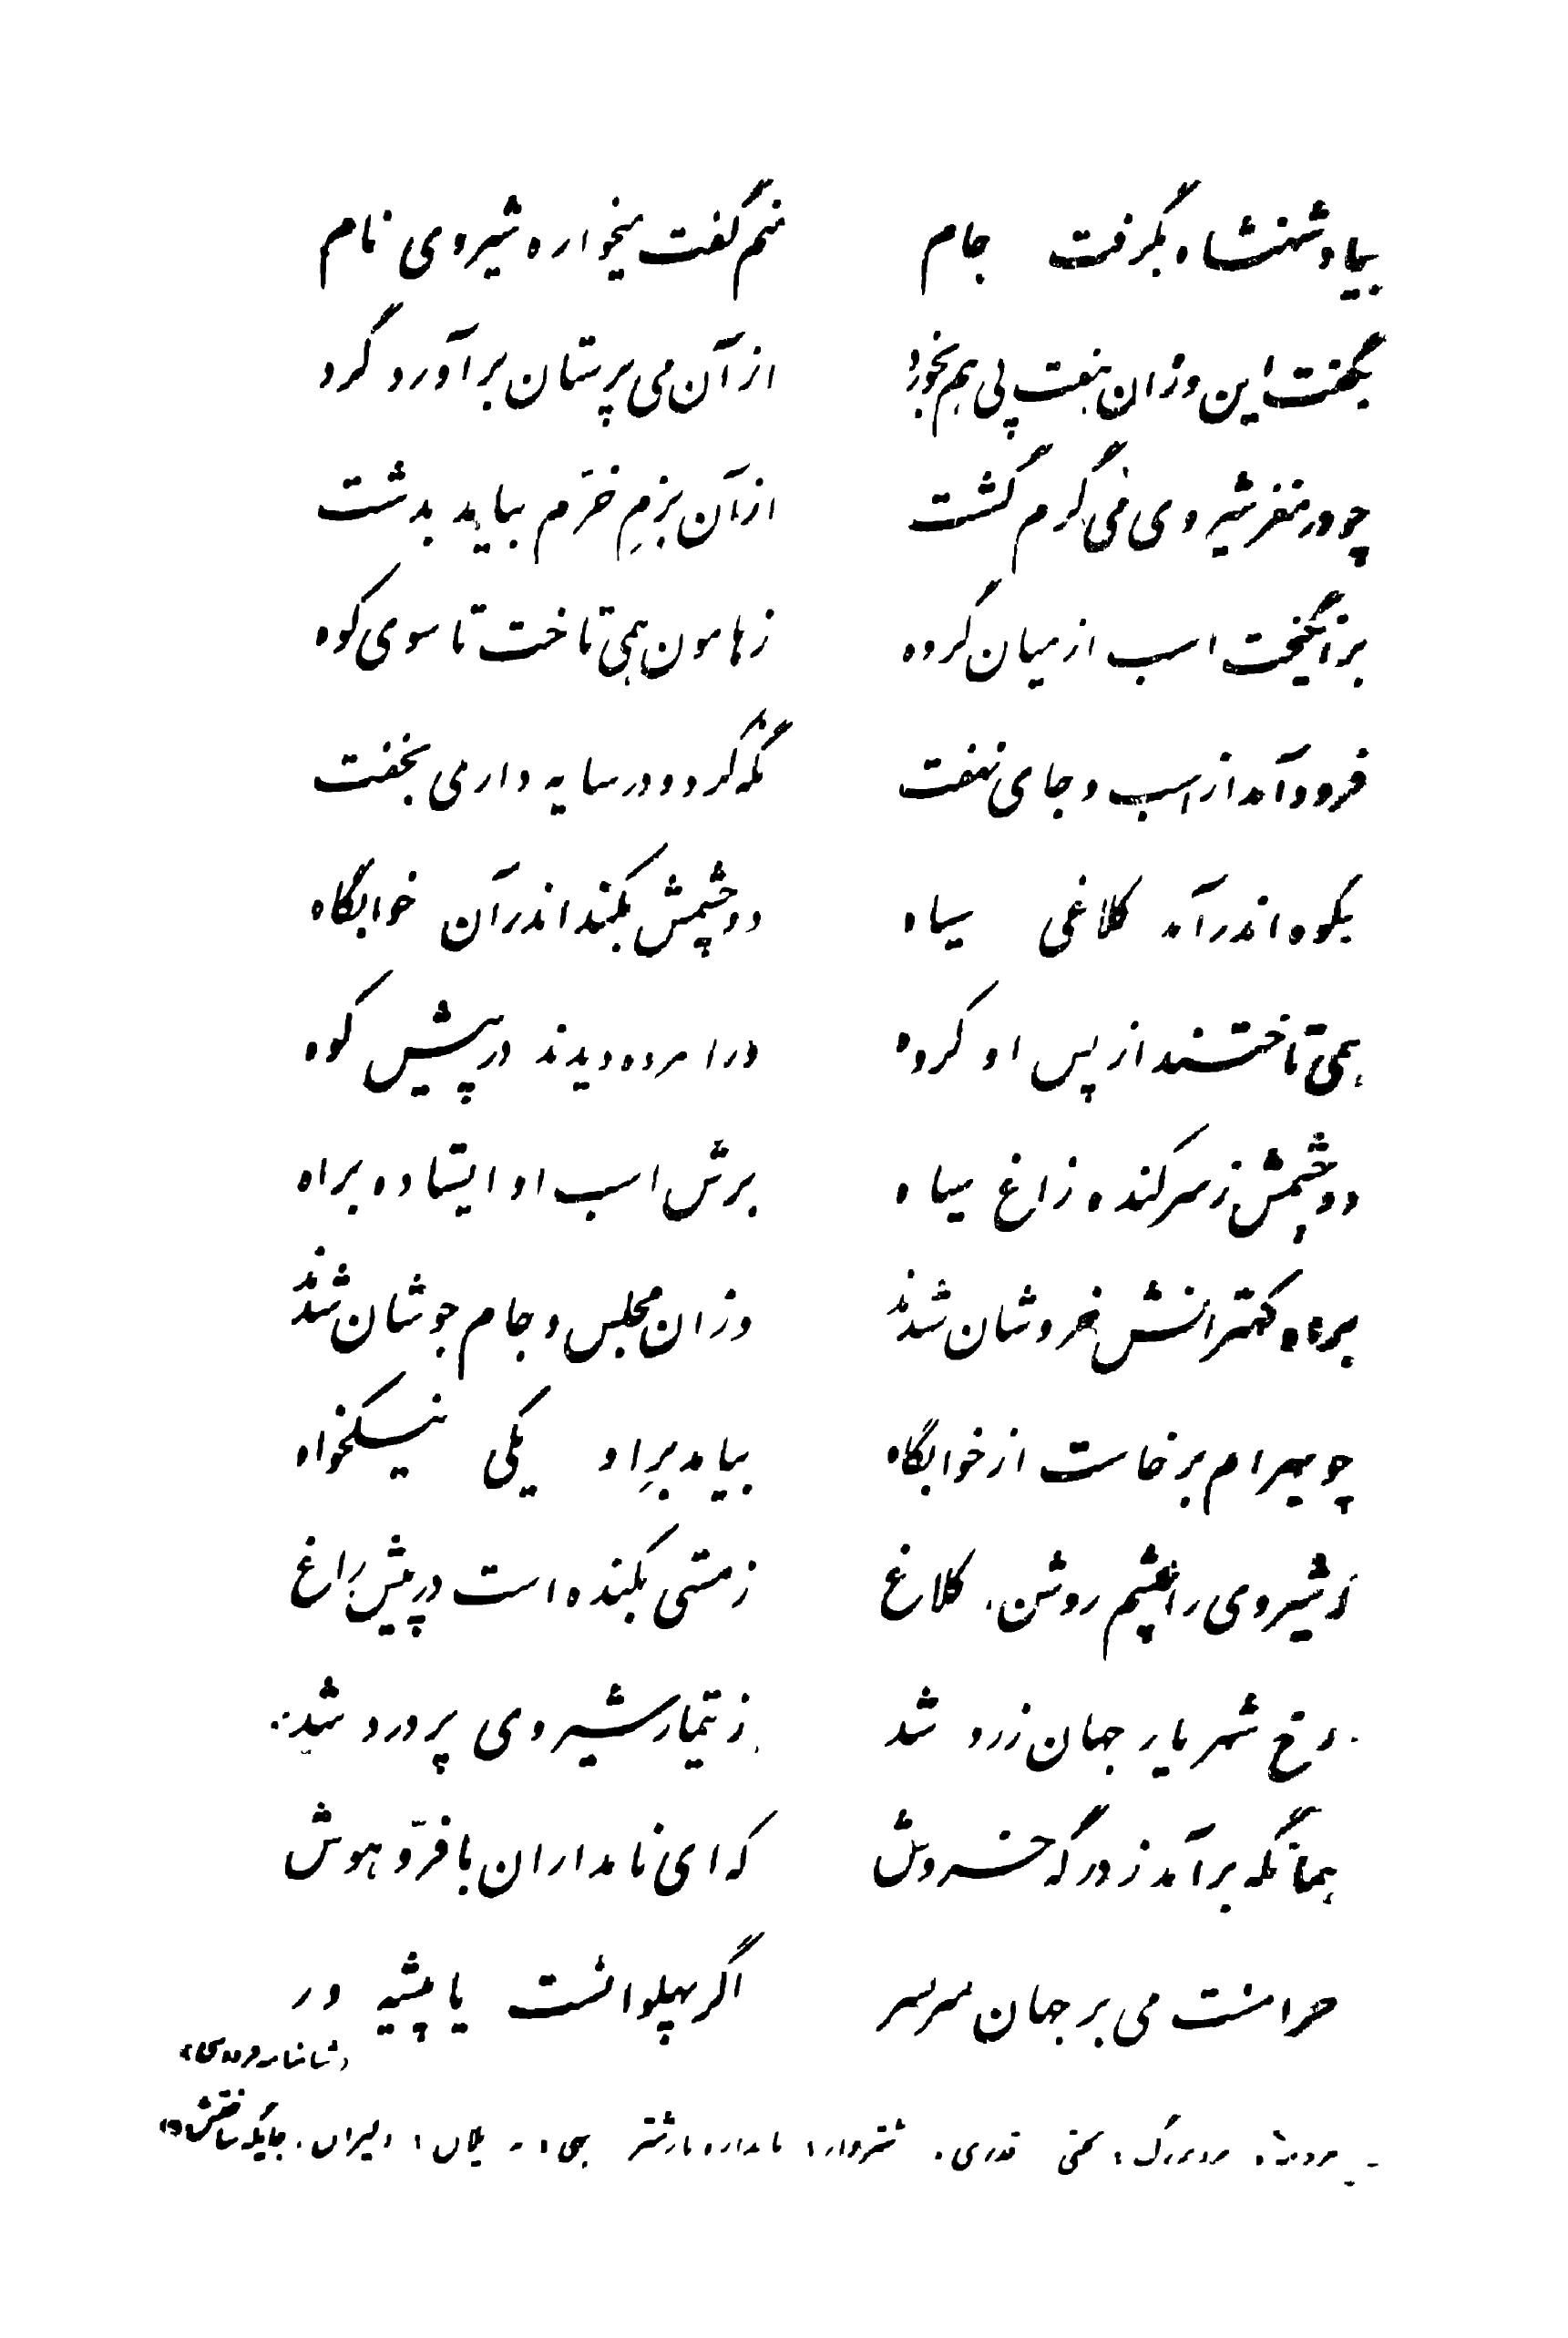 بیاد شهنشاه بگرفت جام منم گفت میخواره شیروی نام
بگفت این و زان هفت پی هم بخورد از آن می پرستان برآورد گرد
چو در مغز شیروی می گرم گشت از آن بزمِ خرّم بیاید بدشت
برانگیخت اسب از میان گروه زهامون همی تاخت تا سوی کوه
فرود آمد از اسب و جای نهفت نگه کرد و در سایه دار می بخفت
بکوه اندر آمد کلاغی سیاه دو چشمش بکند اندر آن خوابگاه
همی تاختند از پس او گروه ورا مرده دیدند در پیش کوه
دو چشمش ز سر کنده زاغ سیاه برش اسب او ایستاده براه
برو کهترانش خروشان شدند وزان مجلس و جام جوشان شدند
چو بهرام برخاست از خوابگاه بیامد برِ او یکی نیکخواه
که شیروی را چشم روشن، کلاغ ز مستی بکنده است در پیش راغ
رخ شهریار جهان زرد شد ز تیمار شیروی پر درد شد
همانگه برآمد ز درگه خروش که ای نامداران با فرّ و هوش
حرامست می بر جهان سربسر اگر پهلوانست یا پیشه ور
«شاهنامه فردوسی»